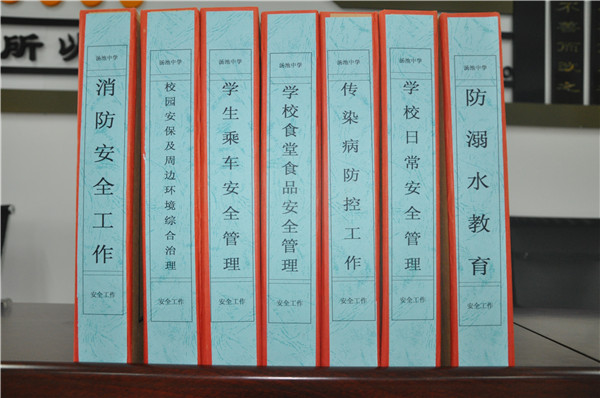 中学
消防安全工作
安全工作
中学
校园安保及周边环境综合治理
安全工作
中学
学生乘车安全管理
安全工作
中学
学校食堂食品安全管理
安全工作
中学
传染病防控工作
安全工作
中学
学校日常安全管理
安全工作
中学
防溺水教育
安全工作